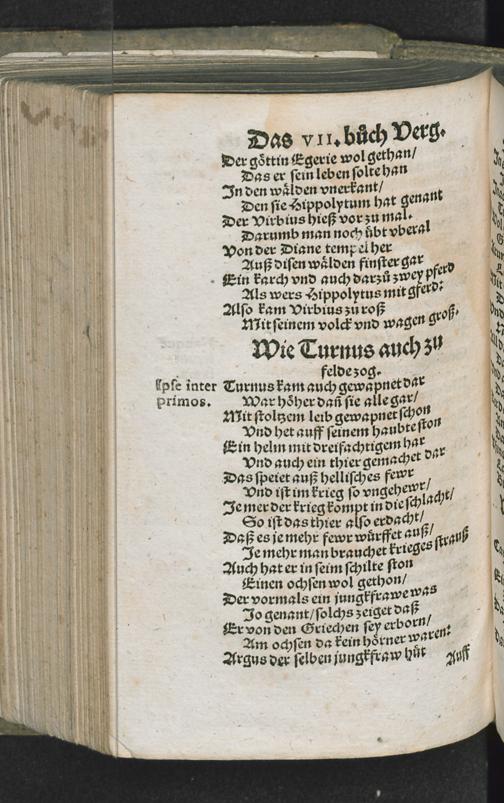 Das VII. bůch Verg.
Der göttin Egerie wol gethan/
Das er sein leben solte han
In den wälden vnerkant/
Den sie Hippolytum hat genant
Der Virbius hieß vor zu mal.
Darumb man noch übt vberal
Von der Diane tempel her
Auß disen wälden finster gar
Ein karch vnd auch darzů zwey pferd
Als wers Hippolytus mit gferd:
Also kam Virbius zu roß
Mit seinem volck vnd wagen groß.
Wie Turnus auch zu
felde zog.
Ipse inter
primos.
Turnus kam auch gewapnet dar
War höher dañ sie alle gar/
Mit stoltzem leib gewapnet schon
Vnd het auff seinem haubte ston
Ein helm mit dreifachtigem har
Vnd auch ein thier gemachet dar
Das speiet auß hellisches fewr
Vnd ist im krieg so vngehewr/
Je mer der krieg kompt in die schlacht/
So ist das thier also erdacht/
Daß es je mehr fewr würffet auß/
Je mehr man brauchet krieges strauß
Auch hat er in seim schilte ston
Einen ochsen wol gethon/
Der vormals ein jungkfrawe was
Jo genant/ solchs zeiget daß
Er von den Griechen sey erborn/
Am ochsen da kein hörner waren:
Argus der selben jungkfraw hüt
Auff